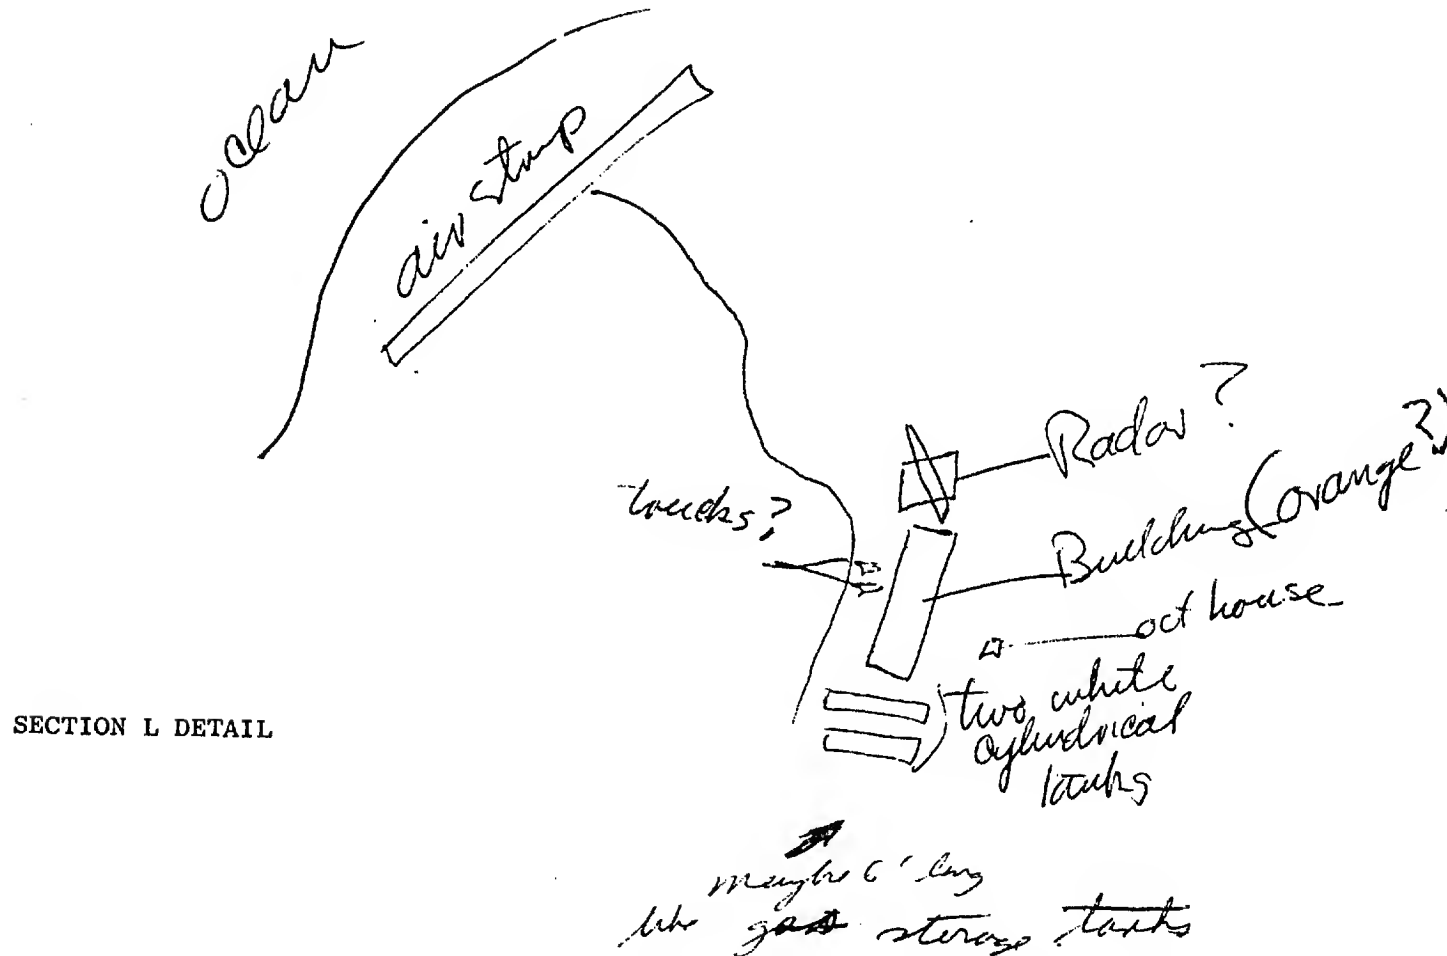 ocean
air strip
Radar?
trucks?
Building (orange?)
out house
two white
cylindrical
tanks
SECTION L DETAIL
maybe 6' long
like gas storage tanks